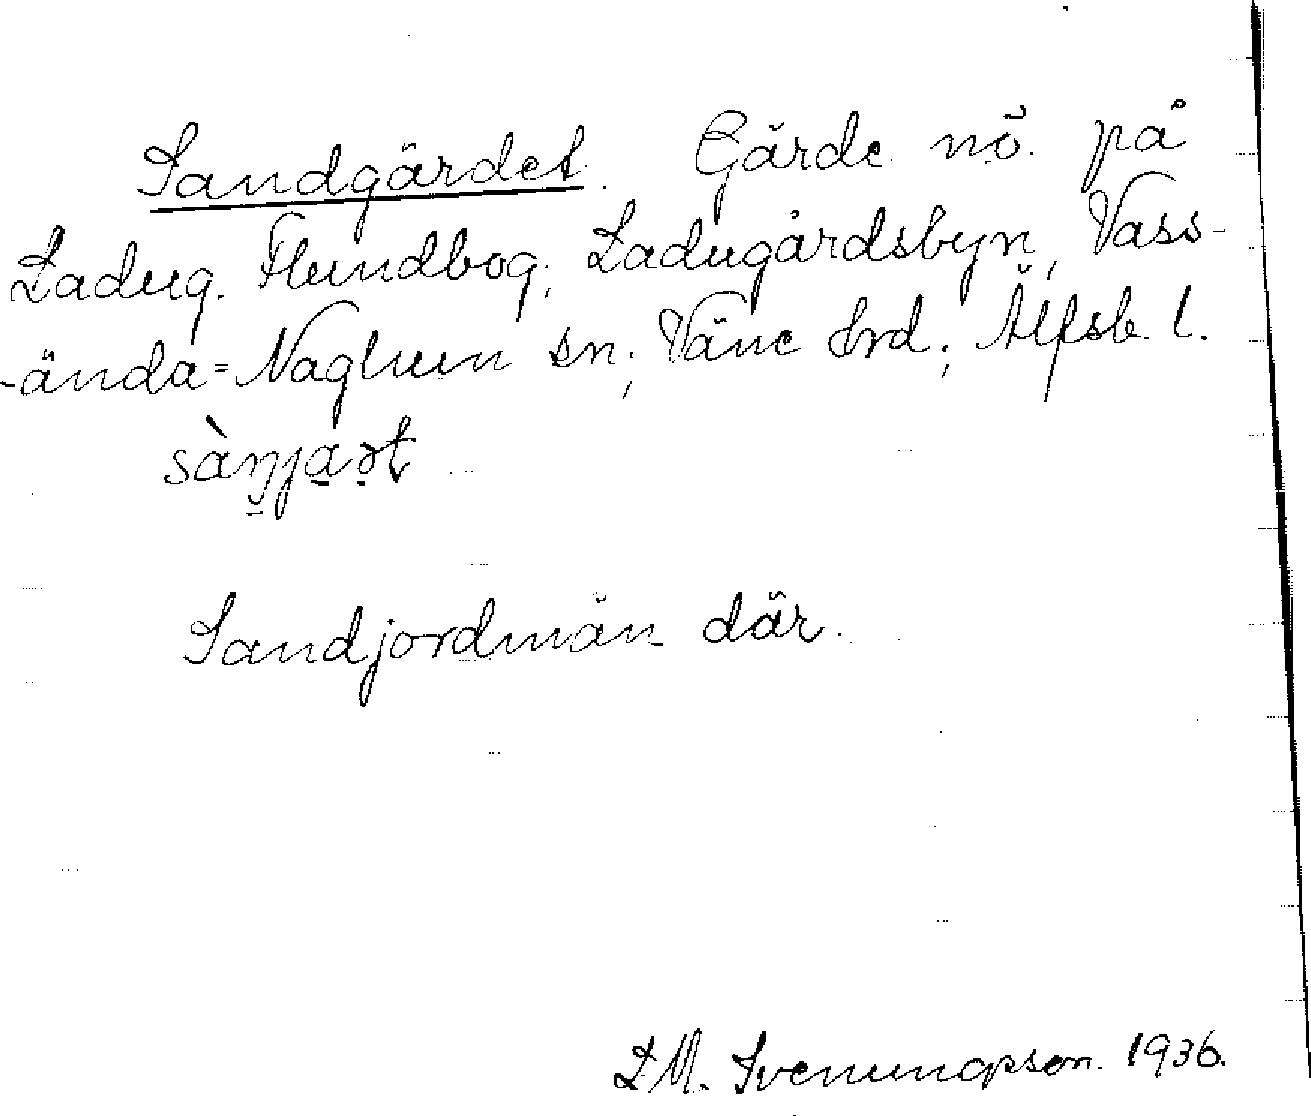 Sandgärdet. Gärde nö. på
Ladug. Flundbog; Ladugårdsbyn, Vass-
-ända-Naglum sn; Väne hrd; Älfsb. l.
Sandjordmån där.
D M. Svenungsson. 1936.